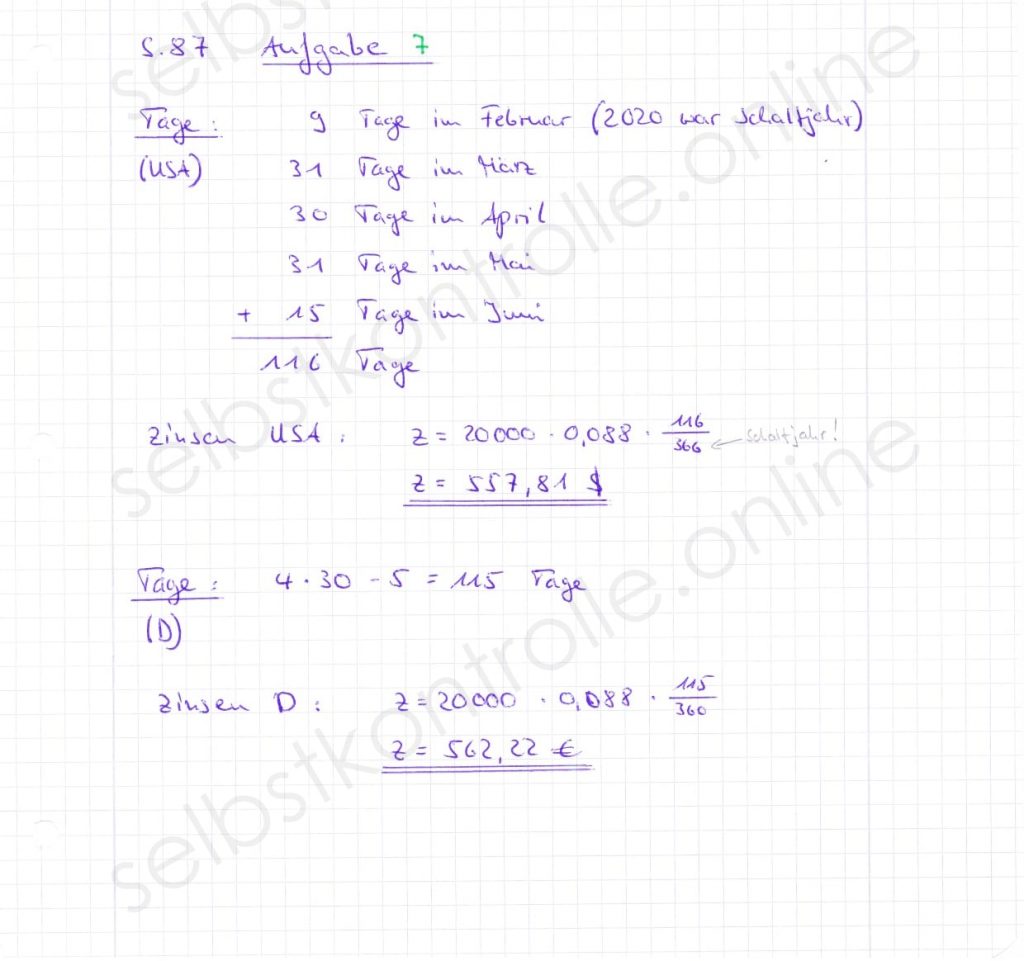 S.87 Aufgabe 7
Tage: 9 Tage im Februar (2020 war Schaltjahr)
(USA) 31 Tage im März
30 Tage im April
31 Tage im Mai
+ 15 Tage im Juni
116 Tage
Zinsen USA: Z = 20000 · 0,088 · 116/366 ← Schaltjahr!
Z = 557,81 $
Tage: 4 · 30 - 5 = 115 Tage
(D)
Zinsen D: Z = 20000 · 0,088 · 115/360
Z = 562,22 €
selbstkontrolle.online
selbstkontrolle.online